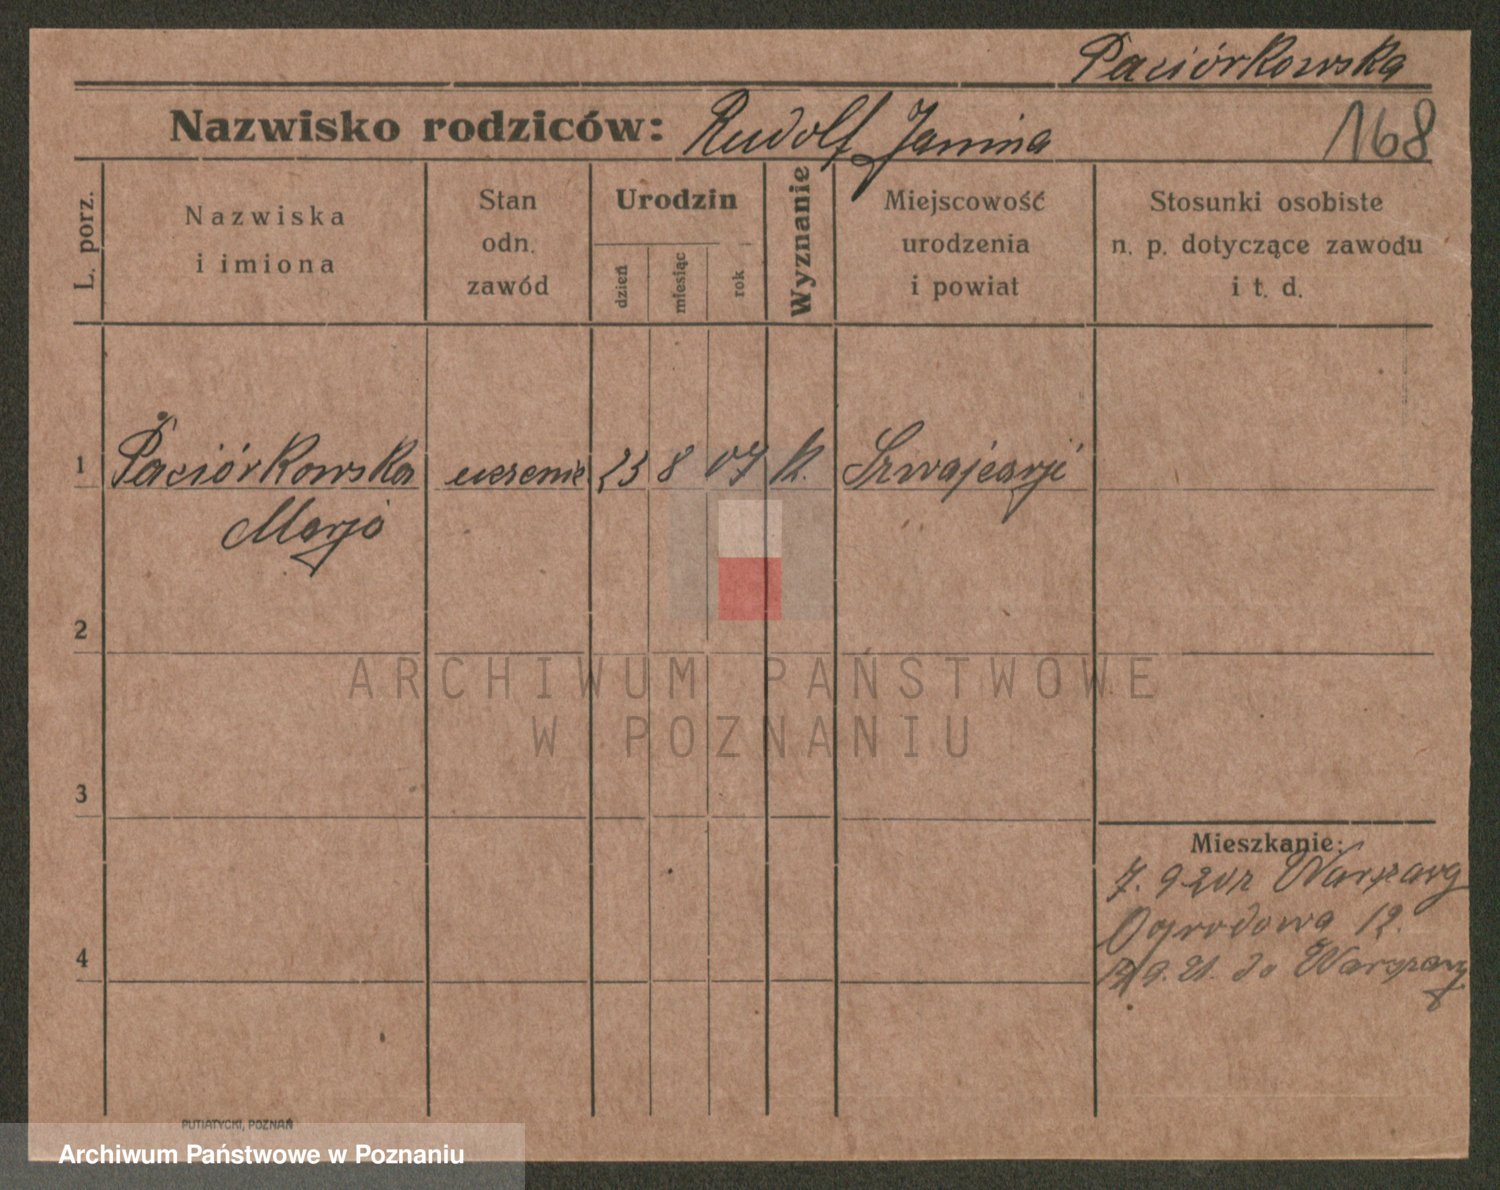 Paciórkowska
Nazwisko rodziców: Rudolf Janina
168
L. porz.
Nazwiska
i imiona
Stan
odn.
zawód
Urodzin
dzień
miesiąc
rok
Wyznanie
Miejscowość
urodzenia
i powiat
Stosunki osobiste
n. p. dotyczące zawodu
i t. d.
1 Paciórkowska 23 8 07 k. Szwajcarji
Marja
2
3
4
Mieszkanie:
Ogrodowa 12.
9. 21. do Warszawy
PUTIATYCKI, POZNAŃ
ARCHIWUM PAŃSTWOWE
W POZNANIU
Archiwum Państwowe w Poznaniu